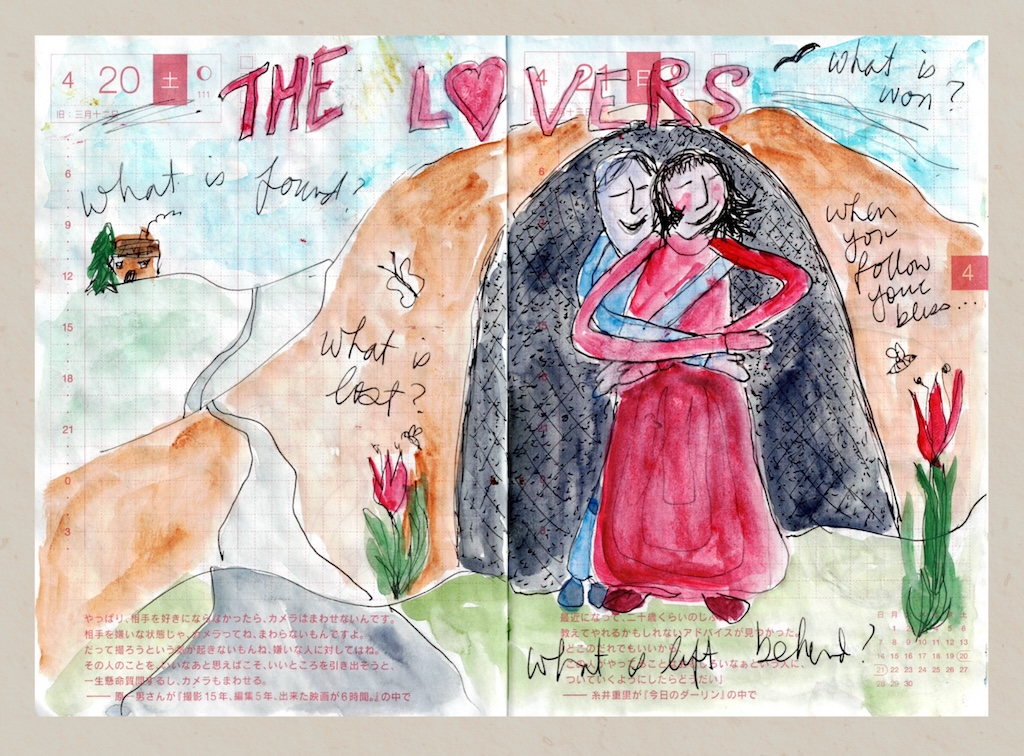 THE LOVERS
4 20 土
111
旧:三月十二日
4 21 日
112
what is found?
what is lost?
what is
won?
when
you
follow
your
bliss...
4
6
9
12
15
18
21
0
3
6
what is left behind?
やっぱり、相手を好きにならなかったら、カメラはまわせないんです。
相手を嫌いな状態じゃ、カメラってね、まわらないもんですよ。
だって撮ろうという気が起きないもんね、嫌いな人に対してはね。
その人のことを、いいなあと思えばこそ、いいところを引き出そうと、
一生懸命質問するし、カメラもまわせる。
—— 原一男さんが『撮影15年、編集5年、出来た映画が6時間。』の中で
最近になって、二十歳くらいのじ
教えてやれるかもしれないアドバイスが見つかった。
どこのだれでもいいから、
この人がやってること しろいなぁという人に、
ついていくようにしたらどうだい」
—— 糸井重里が『今日のダーリン』の中で
日 月 土
7 8 9 10 13
14 15 16 17 20
21 22 23 24 27
28 29 30